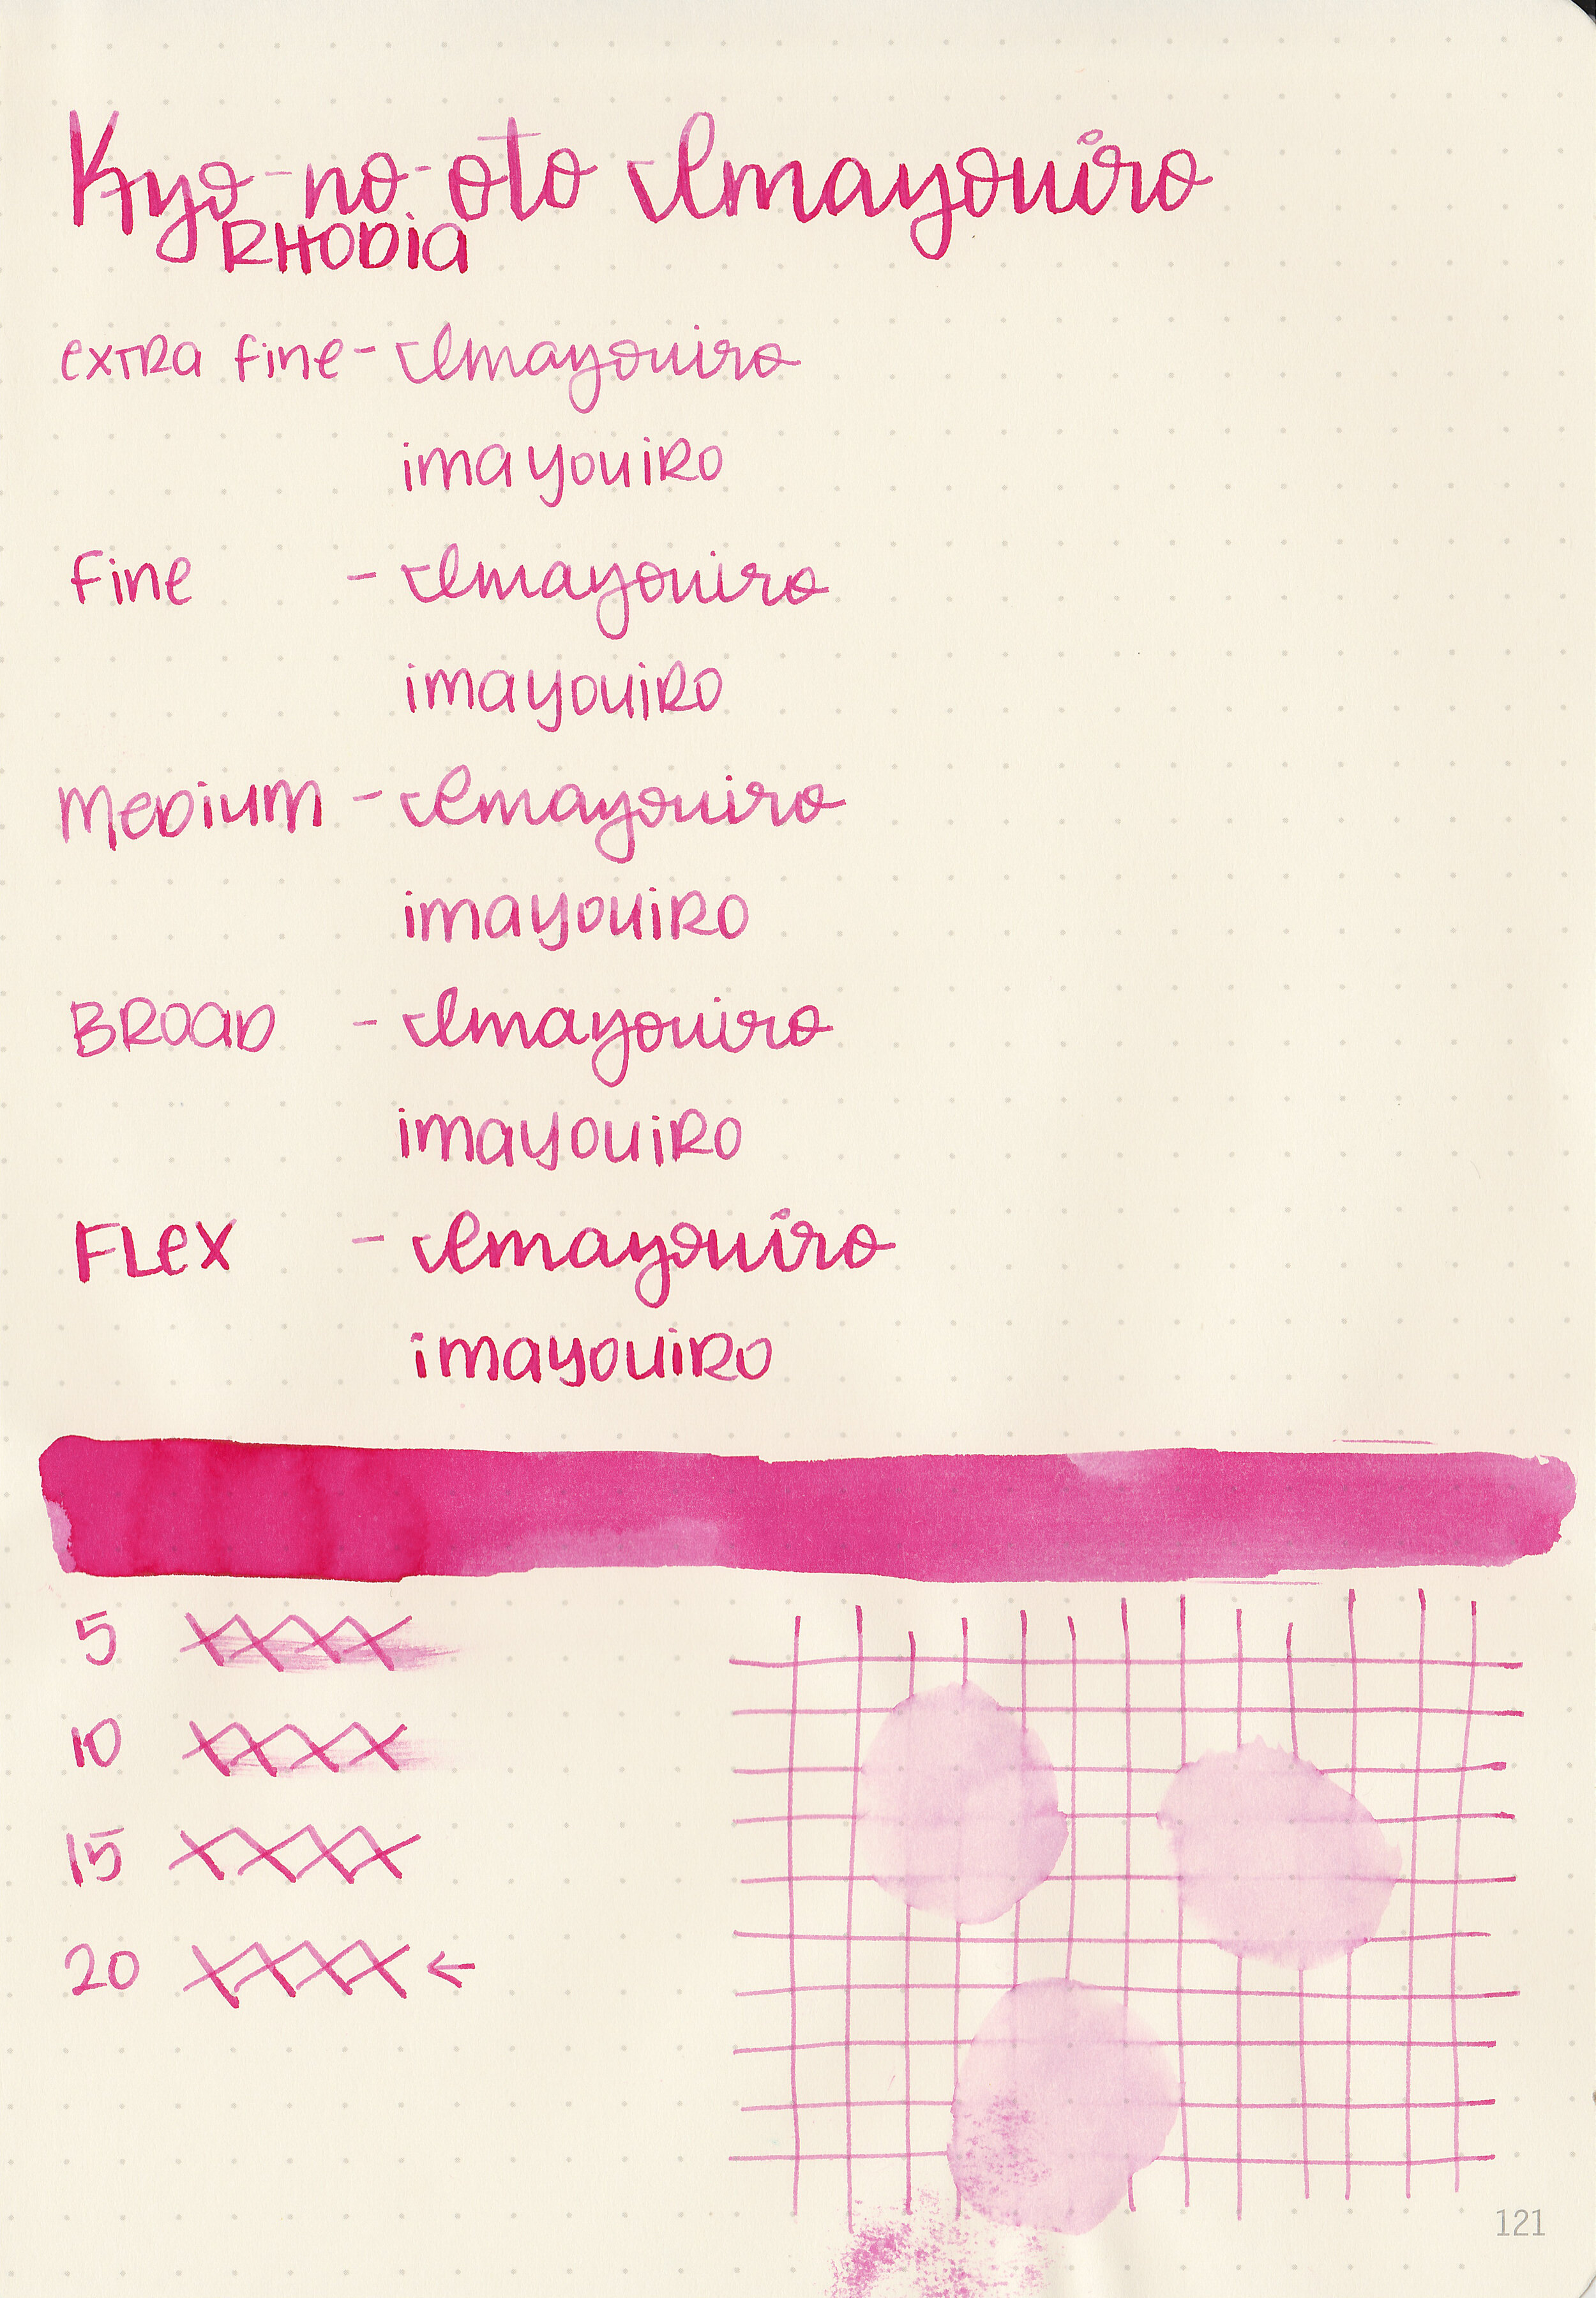 Kyo-no-oto Imayouiro
RHODIA
extra fine - Imayouiro
imayouiro
fine - Imayouiro
imayouiro
Medium - Imayouiro
imayouiro
BROAD - Imayouiro
imayouiro
Flex - Imayouiro
imayouiro
5 XXXX
10 XXXX
15 XXXX
20 XXXX ←
121